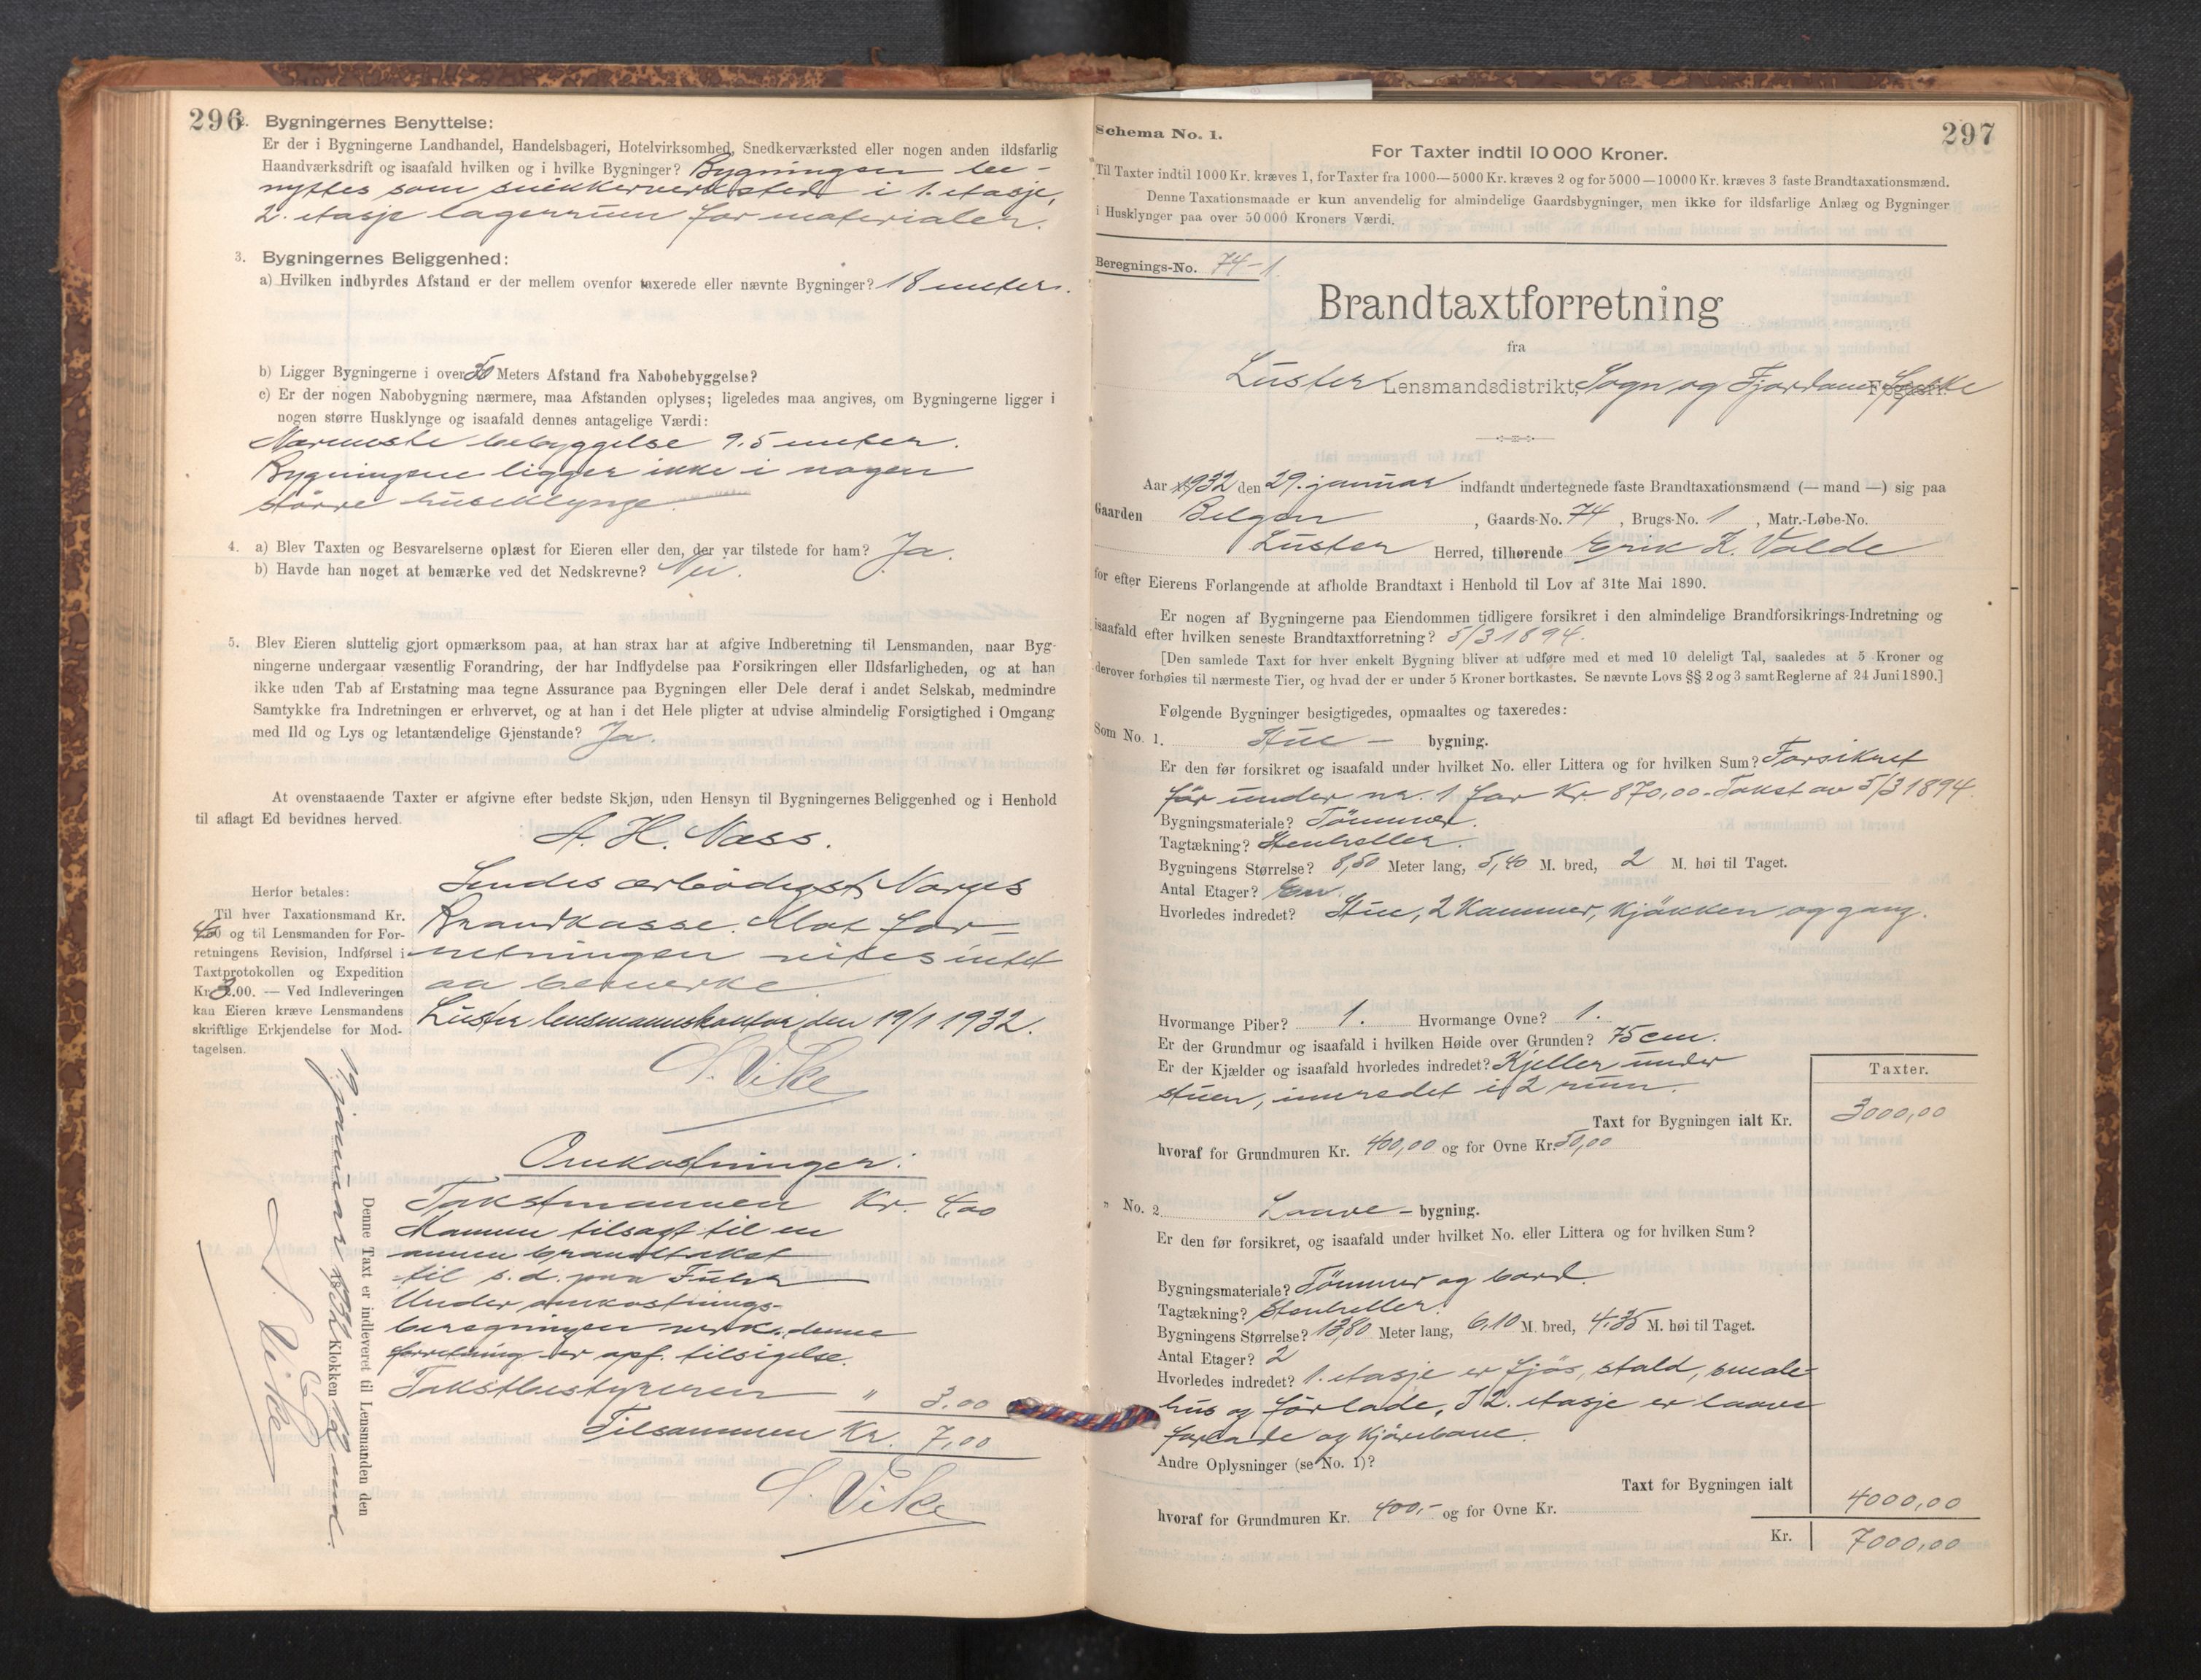 296
2. Bygningernes Benyttelse:
Er der i Bygningerne Landhandel, Handelsbageri, Hotelvirksomhed, Snedkerværksted eller nogen anden ildsfarlig
Haandværksdrift og isaafald hvilken og i hvilke Bygninger? Bygningen be-
nyttes som snekkerverksted i 1. etasje,
2. etasje lagerrum for materialer.
3. Bygningernes Beliggenhed:
a) Hvilken indbyrdes Afstand er der mellem ovenfor taxerede eller nævnte Bygninger? 18 meter.
b) Ligger Bygningerne i over 50 Meters Afstand fra Nabobebyggelse?
c) Er der nogen Nabobygning nærmere, maa Afstanden oplyses; ligeledes maa angives, om Bygningerne ligger i
nogen større Husklynge og isaafald dennes antagelige Værdi:
Nærmeste bebyggelse 9.5 meter.
Bygningene ligger ikke i nogen
större huseklynge.
4. a) Blev Taxten og Besvarelserne oplæst for Eieren eller den, der var tilstede for ham? Ja.
b) Havde han noget at bemærke ved det Nedskrevne? Nei.
5. Blev Eieren sluttelig gjort opmærksom paa, at han strax har at afgive Indberetning til Lensmanden, naar Byg-
ningerne undergaar væsentlig Forandring, der har Indflydelse paa Forsikringen eller Ildsfarligheden, og at han
ikke uden Tab af Erstatning maa tegne Assurance paa Bygningen eller Dele deraf i andet Selskab, medmindre
Samtykke fra Indretningen er erhvervet, og at han i det Hele pligter at udvise almindelig Forsigtighed i Omgang
med Ild og Lys og letantændelige Gjenstande? Ja.
At ovenstaaende Taxter er afgivne efter bedste Skjøn, uden Hensyn til Bygningernes Beliggenhed og i Henhold
til aflagt Ed bevidnes herved.
A. H. Næss.
Herfor betales:
Til hver Taxationsmand Kr.
4.00 og til Lensmanden for For-
retningens Revision, Indførsel i
Taxtprotokollen og Expedition
Kr. 3.00. — Ved Indleveringen
kan Eieren kræve Lensmandens
skriftlige Erkjendelse for Mod-
tagelsen.
Sendes ærbödigst Norges
Brandkasse. Mot for-
retningen vites intet
aa bemerke.
Luster lensmannskontor, den 19/1 1932.
S. Vike
Denne Taxt er indleveret til Lensmanden den
19. januar 1932 Klokken
S. Vike
Omkostninger:
Takstmannen Kr. 4,00
Mannen tilsagt til en
annen brandtakst
til s. d. paa
Under omkostnings-
beregningen denne
forretning er opf. tilsigelse.
Takstbestyreren " 3.00
Tilsammen Kr. 7,00
S. Vike
297
Schema No. 1.
For Taxter indtil 10 000 Kroner.
Til Taxter indtil 1000 Kr. kræves 1, for Taxter fra 1000—5000 Kr. kræves 2 og for 5000—10000 Kr. kræves 3 faste Brandtaxationsmænd.
Denne Taxationsmaade er kun anvendelig for almindelige Gaardsbygninger, men ikke for ildsfarlige Anlæg og Bygninger
i Husklynger paa over 50 000 Kroners Værdi.
Beregnings-No. 74-1.
Brandtaxtforretning
fra
Luster Lensmandsdistrikt, Sogn og Fjordane Fogderi. Fylke
Aar 1932 den 29. januar indfandt undertegnede faste Brandtaxationsmænd (— mand —) sig paa
Gaarden Bolgen, Gaards-No. 74, Brugs-No. 1, Matr.-Løbe-No.
Luster Herred, tilhørende Erik K. Valde
for efter Eierens Forlangende at afholde Brandtaxt i Henhold til Lov af 31te Mai 1890.
Er nogen af Bygningerne paa Eiendommen tidligere forsikret i den almindelige Brandforsikrings-Indretning og
isaafald efter hvilken seneste Brandtaxtforretning? 5/3 1894.
[Den samlede Taxt for hver enkelt Bygning bliver at udføre med et med 10 deleligt Tal, saaledes at 5 Kroner og
derover forhøies til nærmeste Tier, og hvad der er under 5 Kroner bortkastes. Se nævnte Lovs §§ 2 og 3 samt Reglerne af 24 Juni 1890.]
Følgende Bygninger besigtigedes, opmaaltes og taxeredes:
Som No. 1. Stue- bygning.
Er den før forsikret og isaafald under hvilket No. eller Littera og for hvilken Sum? Forsikret
för under nr. 1 for Kr. 870,00. Takst av 5/3 1894
Bygningsmateriale? Tömmer.
Tagtækning? Stenheller.
Bygningens Størrelse? 8,50 Meter lang, 5,40 M. bred, 2 M. høi til Taget.
Antal Etager? En.
Hvorledes indredet? Stue, 2 Kammer, Kjökken og gang.
Hvormange Piber? 1. Hvormange Ovne? 1.
Er der Grundmur og isaafald i hvilken Høide over Grunden? 75 cm.
Er der Kjælder og isaafald hvorledes indredet? Kjeller under
stuen, innredet i 2 rum.
Taxter.
Taxt for Bygningen ialt Kr. 3000,00
hvoraf for Grundmuren Kr. 400,00 og for Ovne Kr. 50,00
" No. 2 Laave- bygning.
Er den før forsikret, og isaafald under hvilket No. eller Littera og for hvilken Sum?
Bygningsmateriale? Tömmer og bord.
Tagtækning? Stenheller.
Bygningens Størrelse? 13,80 Meter lang, 6,10 M. bred, 4.35 M. høi til Taget.
Antal Etager? 2
Hvorledes indredet? 1. etasje er fjös, stald, smale-
hus og förlade, I 2. etasje er laave
forlade og kjörebane.
Andre Oplysninger (se No. 1)?
Taxt for Bygningen ialt 4000,00
hvoraf for Grundmuren Kr. 400,- og for Ovne Kr.
Kr. 7000,00